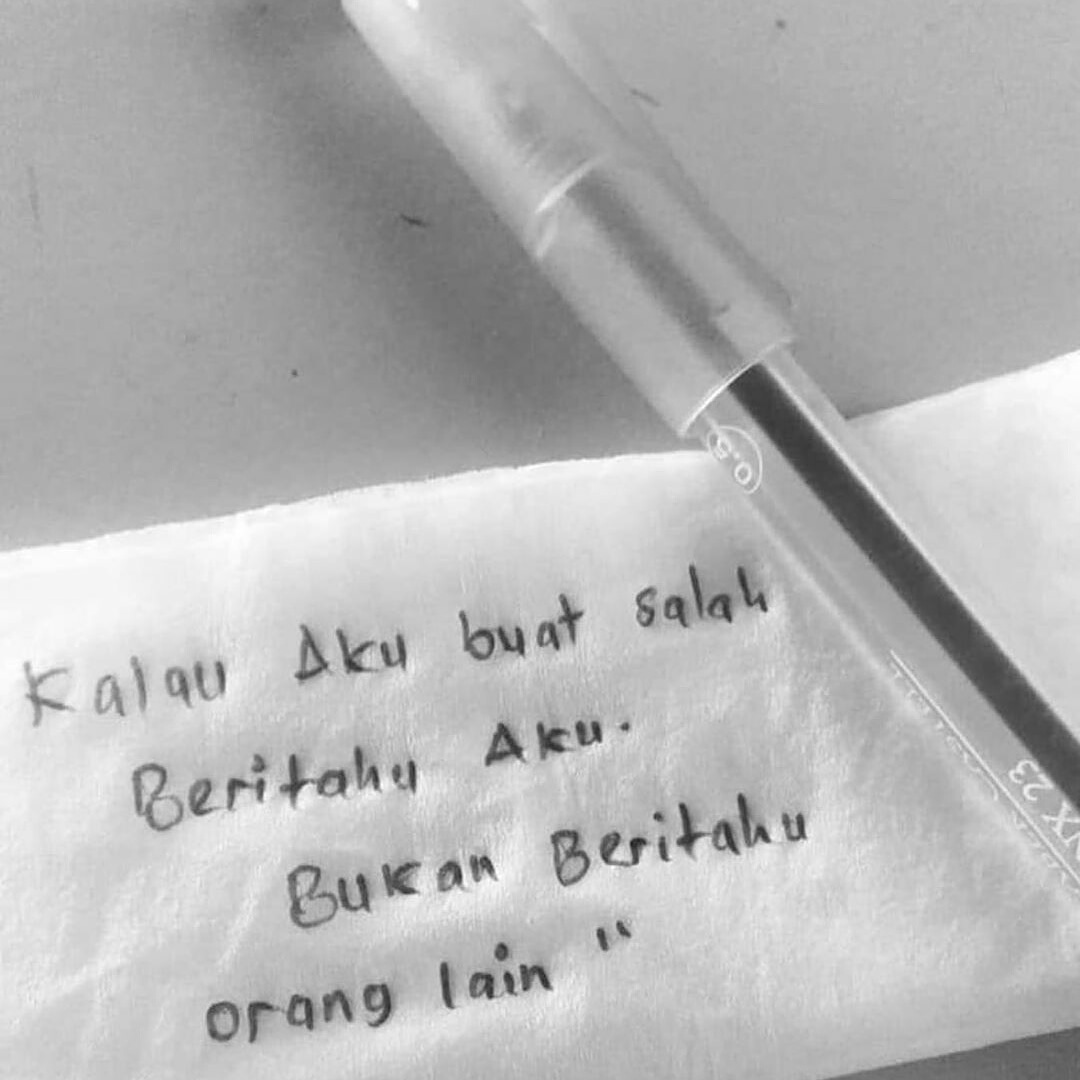 0.5
Kalau Aku buat salah
Beritahu Aku.
Bukan Beritahu
orang lain "